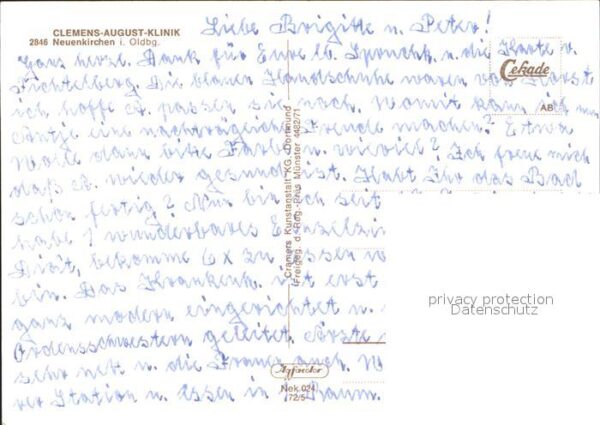 CLEMENS-AUGUST-KLINIK
2846 Neuenkirchen i. Oldbg.
Liebe Brigitte u. Peter!
Ganz herzl. Dank für Eure lb. u. die Karte v.
Fichtelberg. Die blauen Handschuhe waren von
ich hoffe es passen sie noch. Womit kann ich nun
Antje eine nachträgliche Freude machen? Etwa
Wolle dann bitte Farbe u. wieviel? Ich freue mich
daß es wieder gesund ist. Habt Ihr das Bad
schon fertig? Nun bin ich seit
habe 1 wunderbares Einzelzim
Diät, bekomme 6 x zu essen
bin. Das Krankenh. ist erst
ganz modern eingerichtet u.
Ordensschwestern geleitet. Ärzte
sehr nett u. die Frauen auch.
rer Station u. essen in 1 Raum.
Cekade
AB
Cramers Kunstanstalt KG. Dortmund
Freigeg. d. Reg.-Präs Münster 4482/71
Agfacolor
Nek 024
72/5
privacy protection
Datenschutz